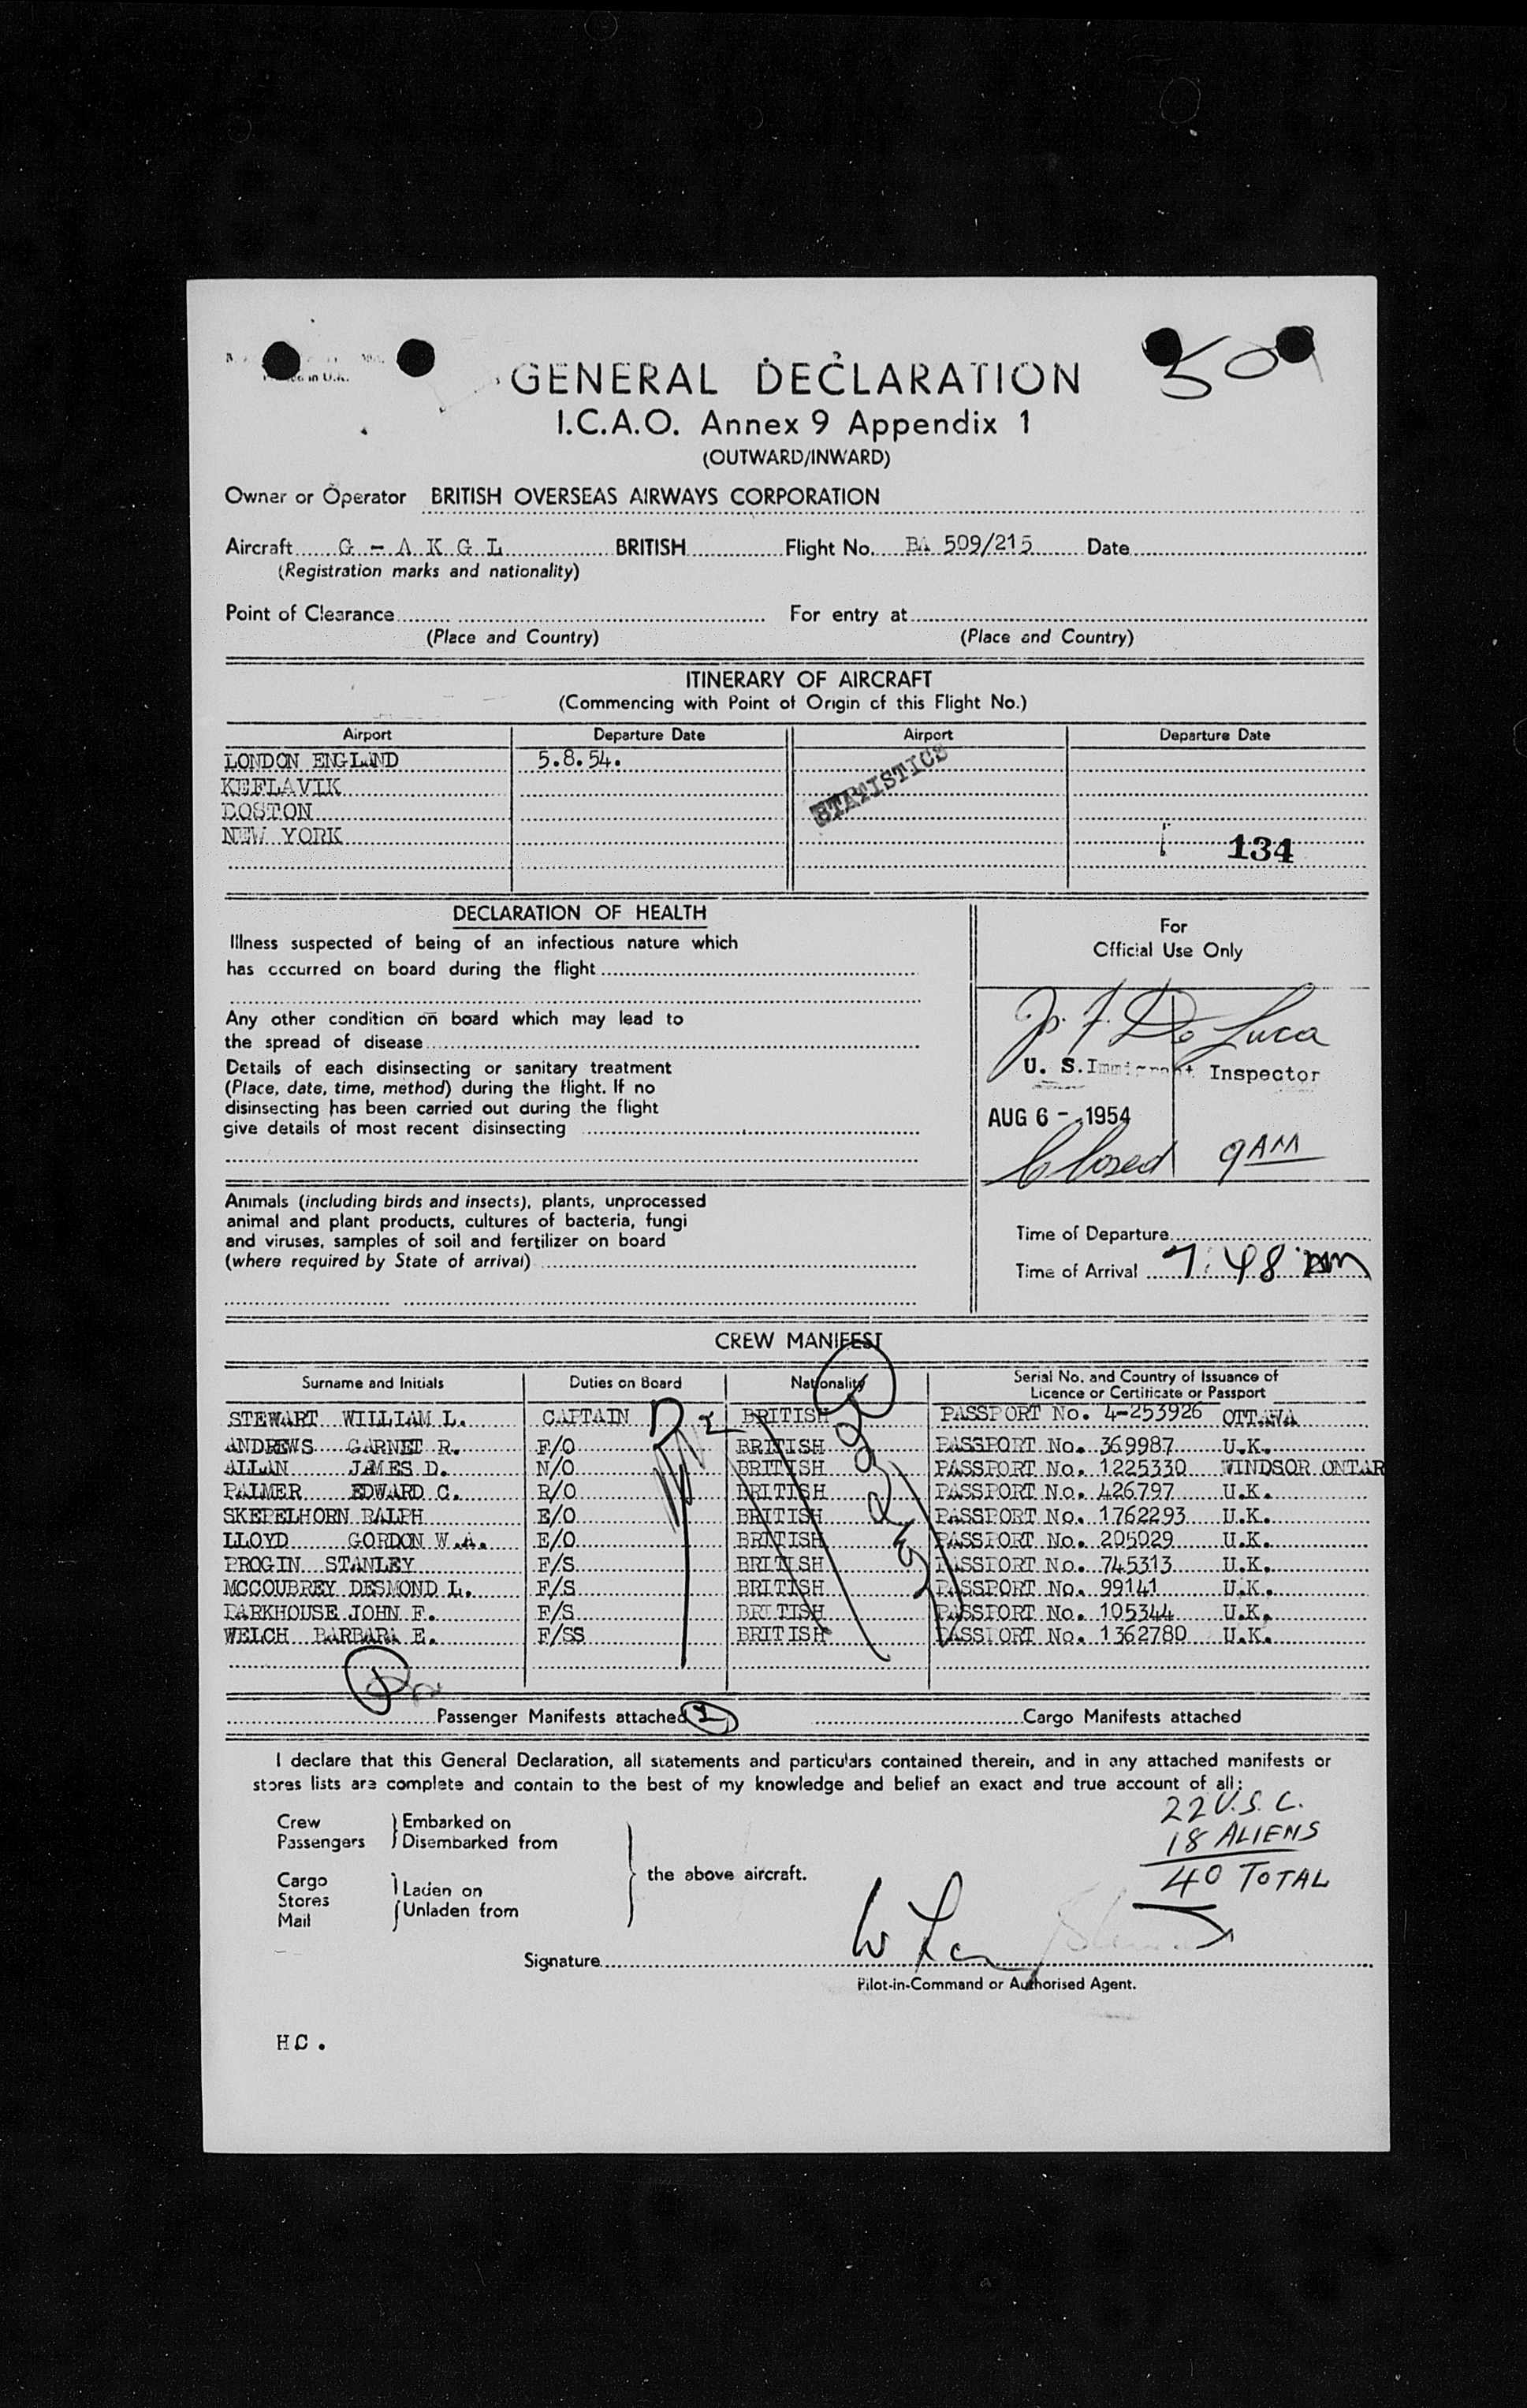 509
GENERAL DECLARATION
I.C.A.O. Annex 9 Appendix 1
(OUTWARD/INWARD)
Owner or Operator BRITISH OVERSEAS AIRWAYS CORPORATION
Aircraft G - A K G L BRITISH Flight No. BA 509/215 Date
(Registration marks and nationality)
Point of Clearance For entry at
(Place and Country) (Place and Country)
ITINERARY OF AIRCRAFT
(Commencing with Point of Origin of this Flight No.)
Airport Departure Date Airport Departure Date
LONDON ENGLAND 5.8.54.
KEFLAVIK
BOSTON
NEW YORK
STATISTICS
134
DECLARATION OF HEALTH
Illness suspected of being of an infectious nature which
has occurred on board during the flight
Any other condition on board which may lead to
the spread of disease
Details of each disinsecting or sanitary treatment
(Place, date, time, method) during the flight. If no
disinsecting has been carried out during the flight
give details of most recent disinsecting
Animals (including birds and insects), plants, unprocessed
animal and plant products, cultures of bacteria, fungi
and viruses, samples of soil and fertilizer on board
(where required by State of arrival)
For
Official Use Only
De Luca
U. S. Immigrant Inspector
AUG 6 - 1954
Closed 9 AM
Time of Departure
Time of Arrival 7:48 am
CREW MANIFEST
Surname and Initials Duties on Board Nationality Serial No. and Country of Issuance of
Licence or Certificate or Passport
STEWART WILLIAM L. CAPTAIN BRITISH PASSPORT No. 4-253926 OTTAWA
ANDREWS GARNET R. F/O BRITISH PASSPORT No. 369987 U.K.
ALLAN JAMES D. N/O BRITISH PASSPORT No. 1225330 WINDSOR ONTAR
PALMER EDWARD C. R/O BRITISH PASSPORT No. 426797 U.K.
SKEPELHORN RALPH E/O BRITISH PASSPORT No. 1762293 U.K.
LLOYD GORDON W.A. E/O BRITISH PASSPORT No. 205029 U.K.
PROGIN STANLEY F/S BRITISH PASSPORT No. 745313 U.K.
MCCOUBREY DESMOND L. F/S BRITISH PASSPORT No. 99141 U.K.
PARKHOUSE JOHN F. F/S BRITISH PASSPORT No. 105344 U.K.
WELCH BARBARA E. F/SS BRITISH PASSPORT No. 1362780 U.K.
Passenger Manifests attached Cargo Manifests attached
I declare that this General Declaration, all statements and particulars contained therein, and in any attached manifests or
stores lists are complete and contain to the best of my knowledge and belief an exact and true account of all:
Crew Embarked on
Passengers Disembarked from
the above aircraft.
Cargo Laden on
Stores Unladen from
Mail
22 U.S.C.
18 ALIENS
40 TOTAL
Signature
Pilot-in-Command or Authorised Agent.
HC.